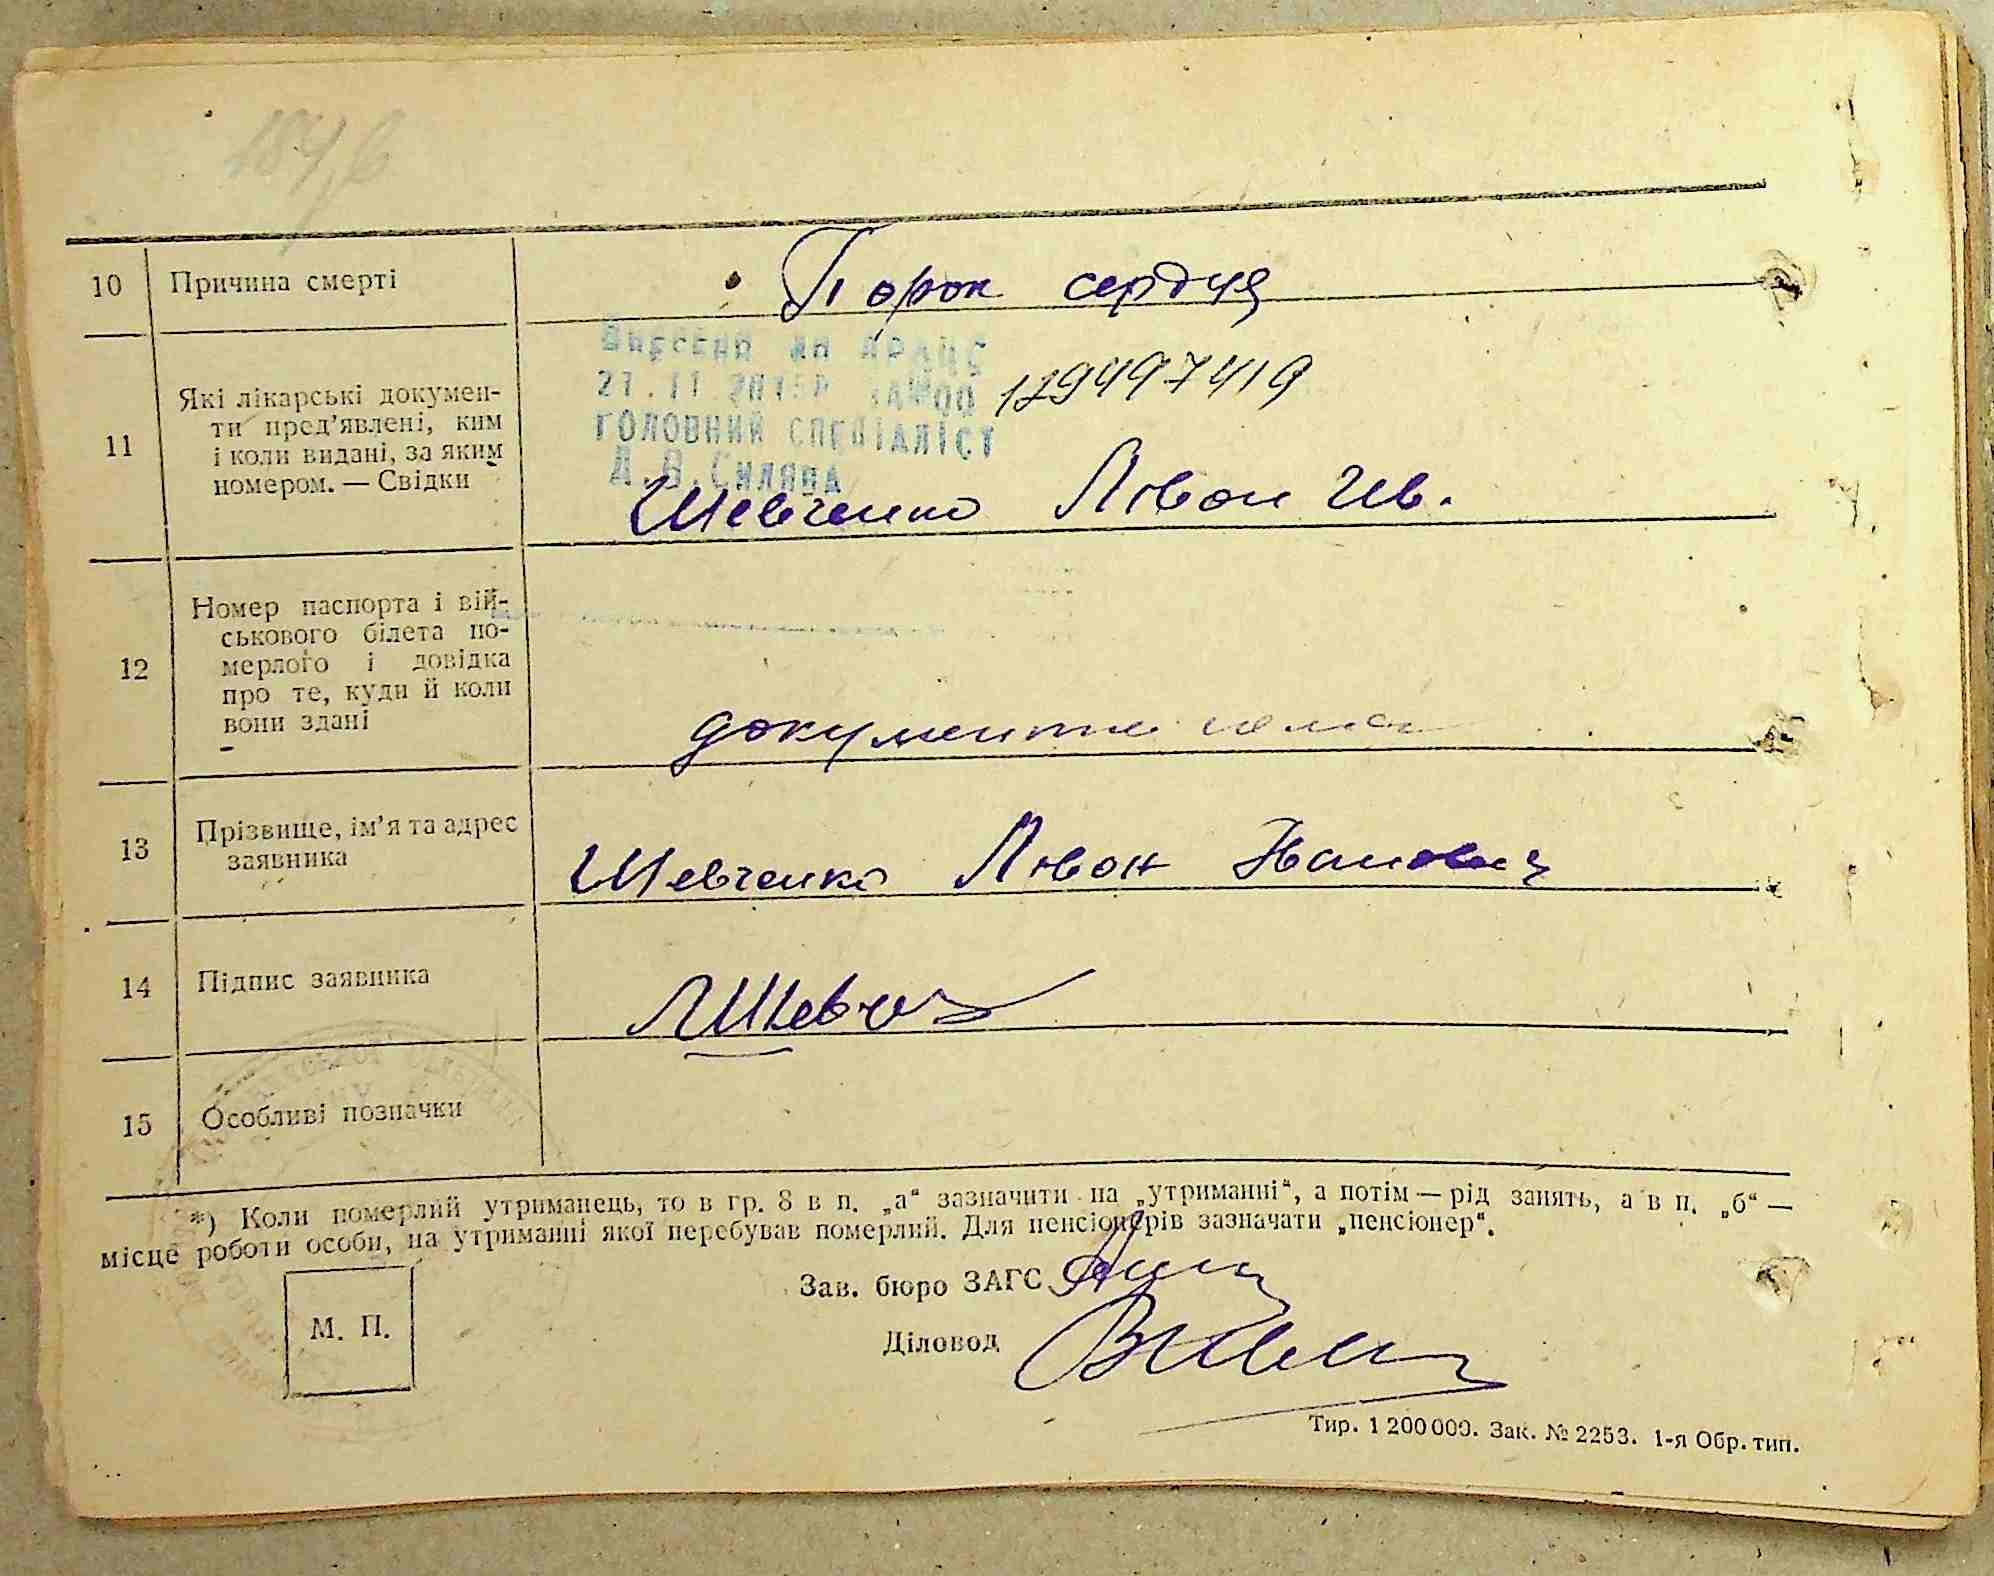 10 Причина смерті
Порок сердця
Внесений до ДРАЦС
129497419
ГОЛОВНИЙ СПЕЦІАЛІСТ
11 Які лікарські докумен-
ти пред’явлені, ким
і коли видані, за яким
номером. — Свідки
Шевченко Лівон Ив.
12 Номер паспорта і вій-
ськового білета по-
мерлого і довідка
про те, куди й коли
вони здані
документи
13 Прізвище, ім’я та адрес
заявника
Шевченко Лівон Иванович
14 Підпис заявника
15 Особливі позначки
*) Коли померлий утриманець, то в гр. 8 в п. „а“ зазначити на „утриманні“, а потім — рід занять, а в п. „б“ —
місце роботи особи, на утриманні якої перебував померлий. Для пенсіонерів зазначати „пенсіонер“.
Зав. бюро ЗАГС
М. П.
Діловод
Тир. 1 200 000. Зак. № 2253. 1-я Обр. тип.